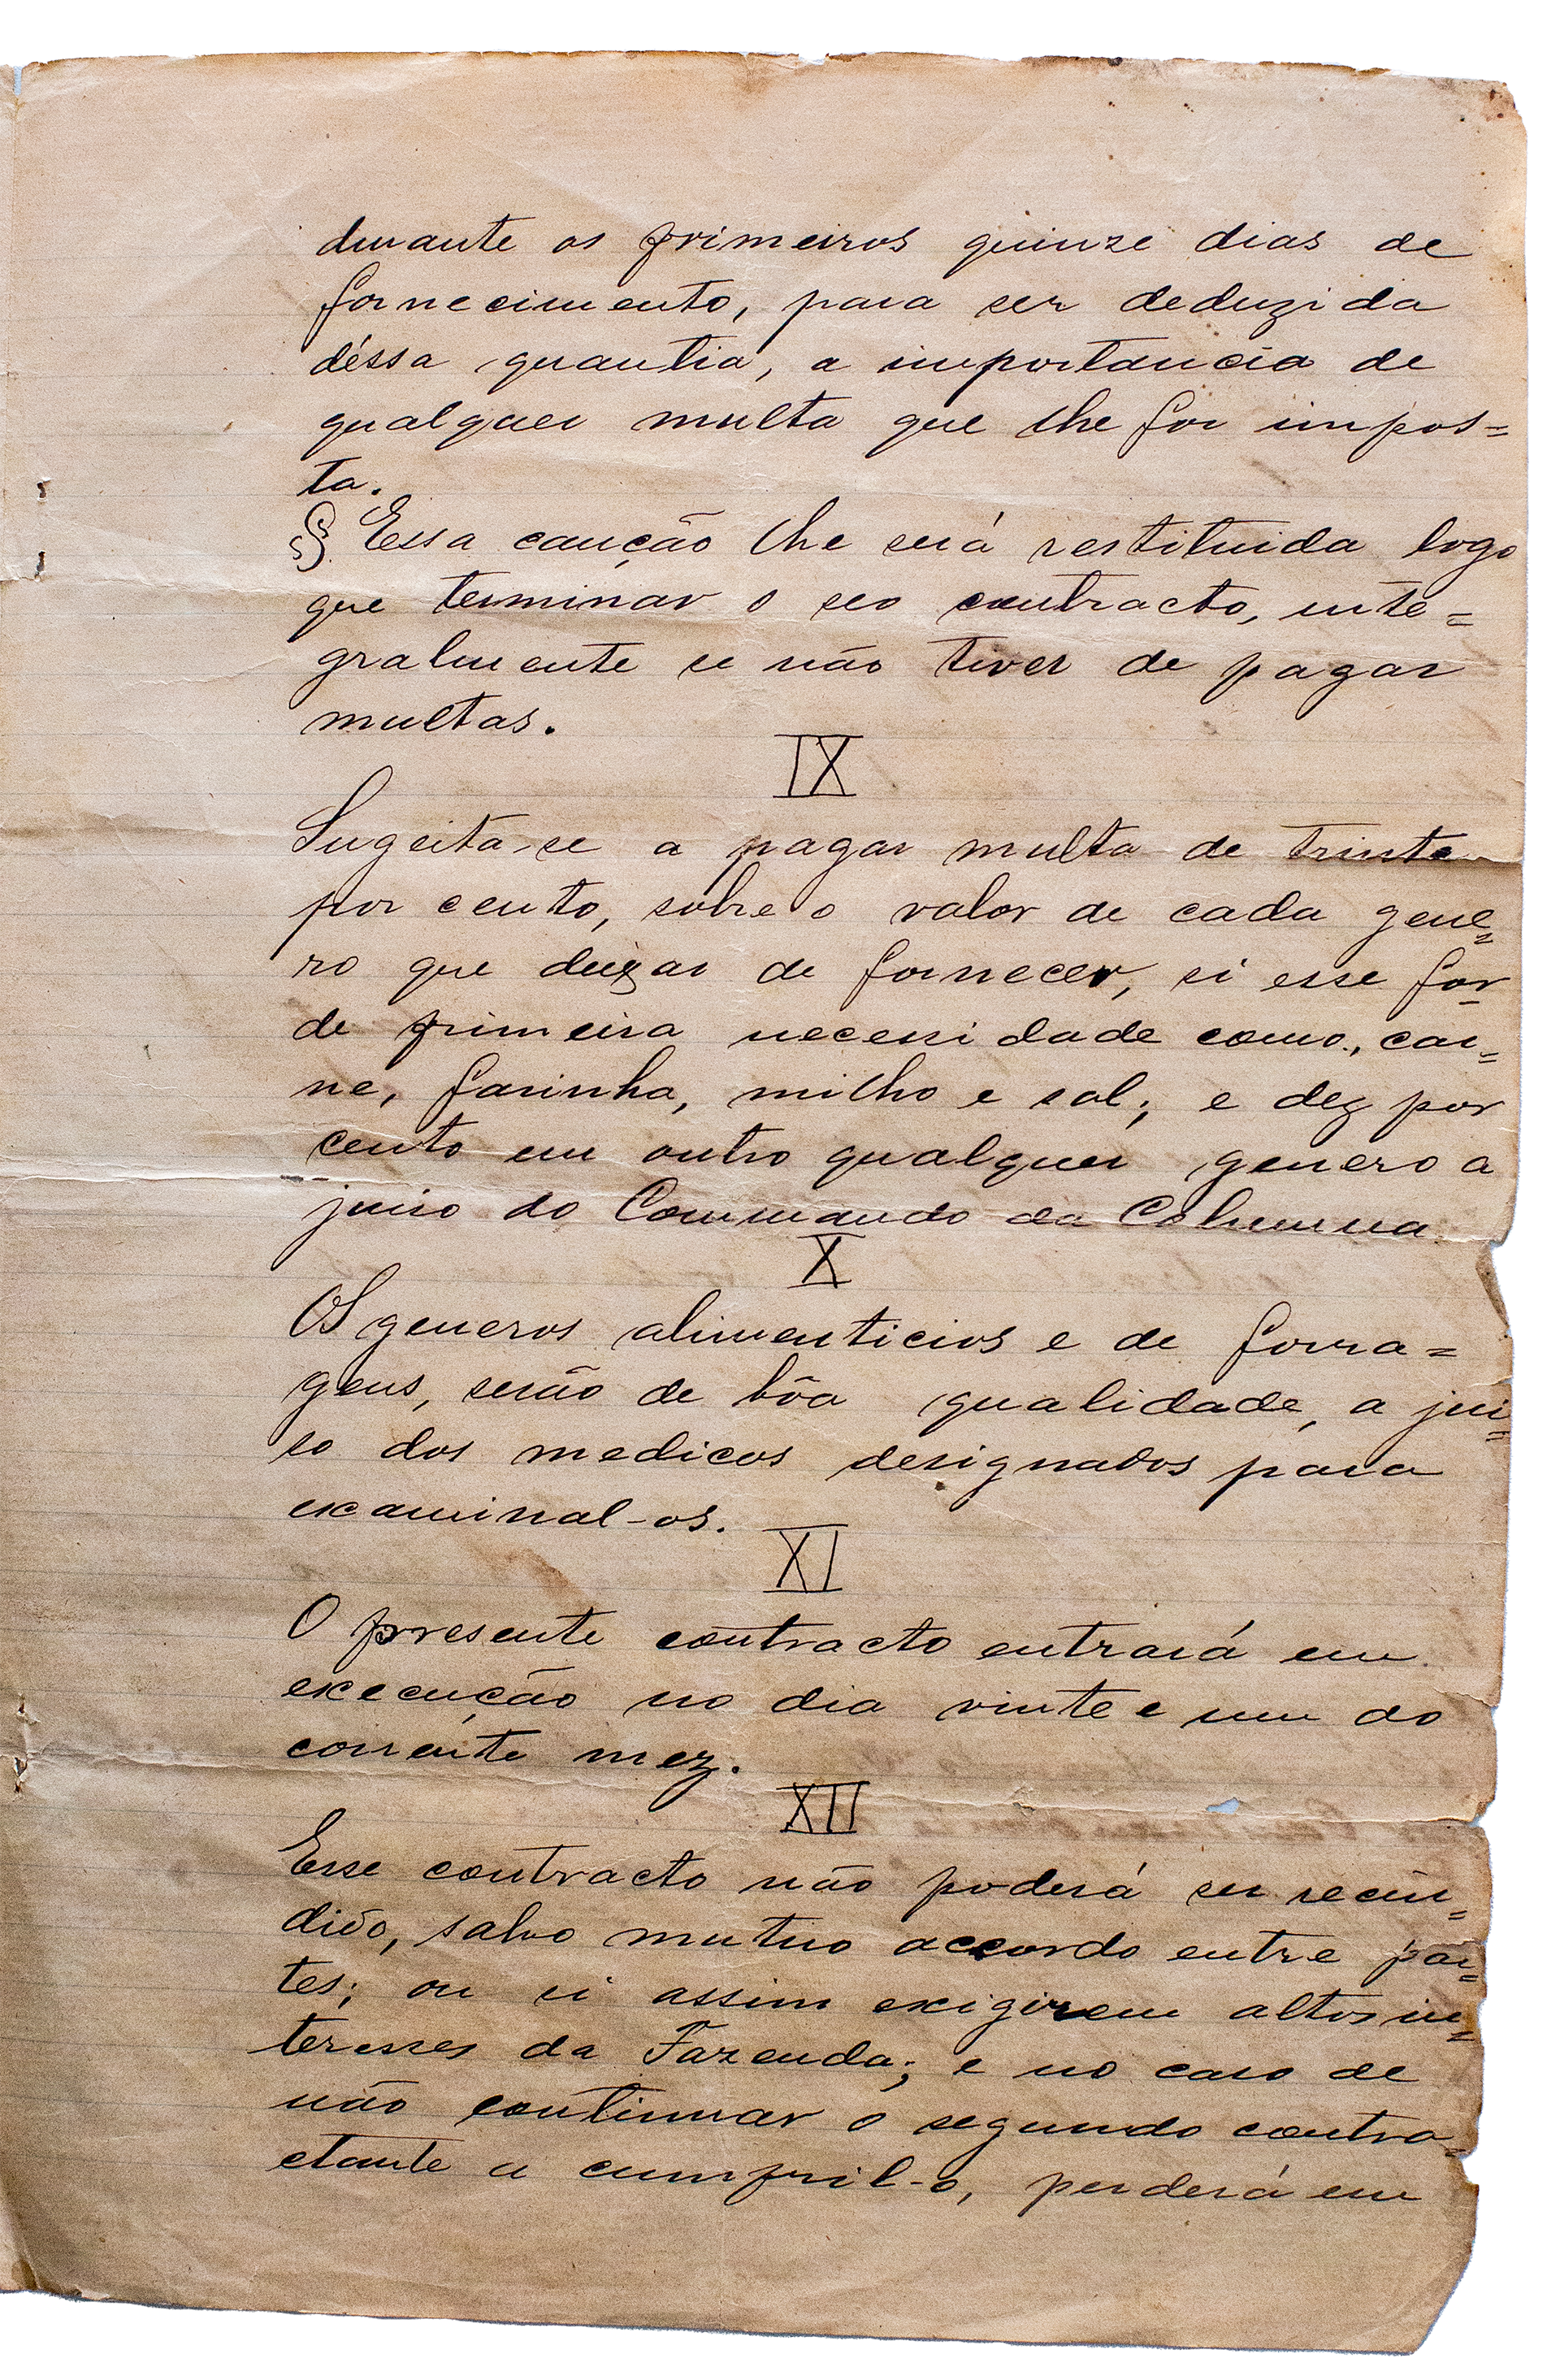 durante os primeiros quinze dias de
fornecimento, para ser deduzida
déssa quantia, a importancia de
qualquer multa que lhe for impos=
ta.
§ Essa caução lhe será restituida logo
que terminar o seo contracto, inte=
gralmente se não tiver de pagar
multas.
IX
Sugeita-se a pagar multa de trinta
por cento, sobre o valor de cada gene=
ro que deixar de fornecer, si esse for
de primeira necessidade como, car=
ne, farinha, milho e sal; e dez por
cento em outro qualquer genero a
juiso do Commando da Columna
X
Os generos alimenticios e de forra=
gens, serão de bôa qualidade, a jui=
so dos medicos designados para
examinal-os.
XI
O presente contracto entrará em
execução no dia vinte e um do
corrente mez.
XII
Esse contracto não poderá ser recin=
dido, salvo mutuo accordo entre par=
tes; ou si assim exigirem altos in=
teresses da Fazenda; e no caso de
não continuar o segundo contra=
ctante a cumpril-o, perderá em